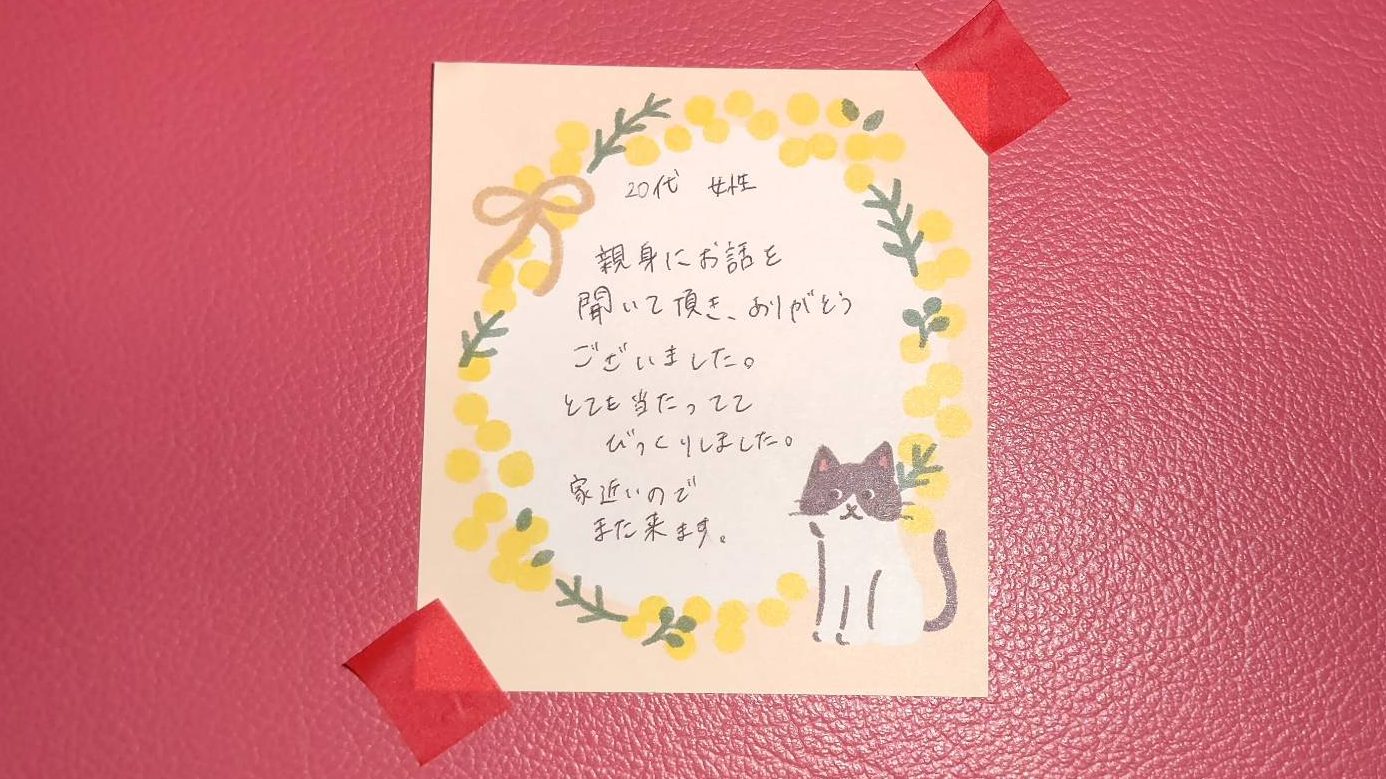 20代 女性
親身にお話を
聞いて頂き、ありがとう
ございました。
とても当たってて
びっくりしました。
家近いので
また来ます。